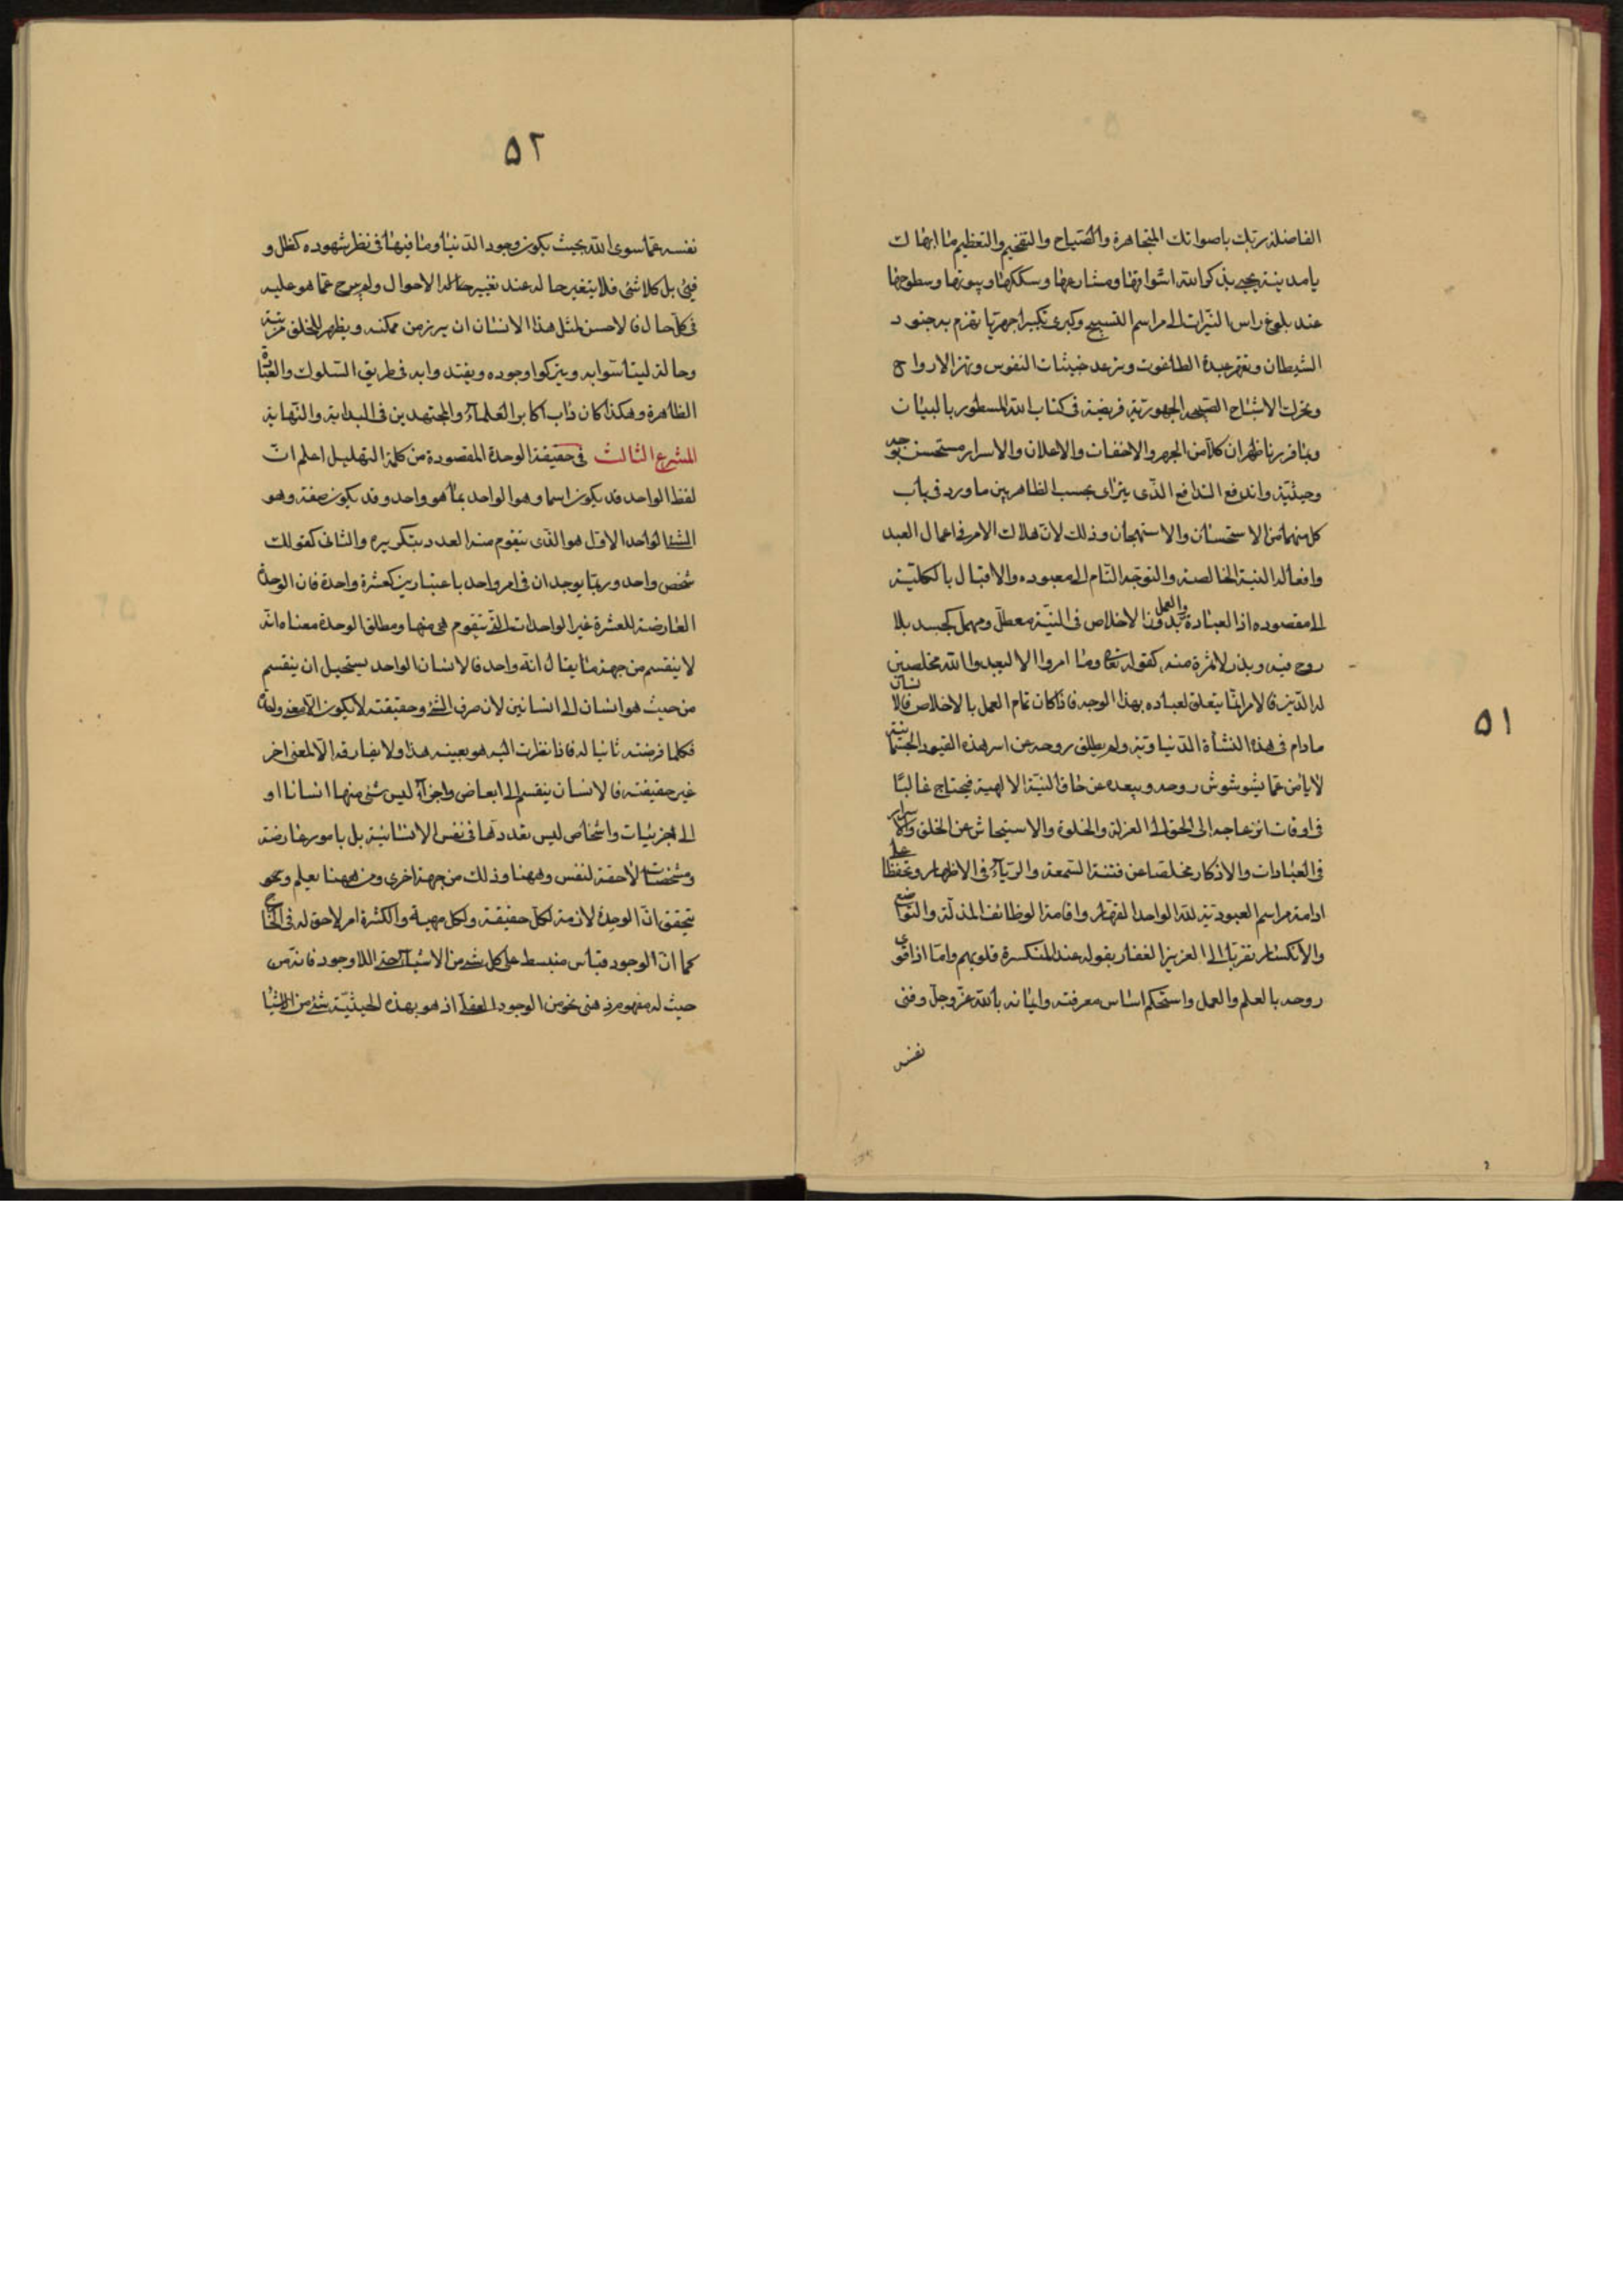 ٥١
الفاضلة ربك باصواتك المتجاهرة والصياح والتفخيم والتعظيم
يا مدينة يجب بذكر الله اسواقها ومشارعها وسككها وبيوتها وسطوحها
عند بلوغ راس النيرات الى مراسم التسبيح وكبرى تكبيرا جهريا تهزم به جنود
الشيطان وتقهر عبدة الطاغوت وترعد خبيثات النفوس وتهز الارواح
وتحرك الاشباح الجهورية فريضة فى كتاب الله المسطور بالبيان
وبما قررنا ظهر ان كلا من الجهر والاخفات والاعلان والاسرار مستحسن بوجه
وحيثية واندفع التدافع الذى يترااى بحسب الظاهر بين ما ورد فى باب
كل منهما من الاستحسان والاستهجان وذلك لان ملاك الامر فى اعمال العبد
وافعاله النية الخالصة والتوجه التام الى معبوده والاقبال بالكلية
الى مقصوده اذ العبادة والعمل بدون الاخلاص فى النية معطل ومهمل كجسد بلا
روح فيه وبذر لا ثمرة منه كقوله تعالى وما امروا الا ليعبدوا الله مخلصين
له الدين فالامر انما يتعلق لعباده بهذا الوجه فاذا كان تمام العمل بالاخلاص فالانسان
ما دام فى هذه النشأة الدنياوية ولم يطلق روحه عن اسر هذه القيود الجثمانية
لا يأمن عما يشوش روحه ويبعده عن خاق النية الالهية فيحتاج غالبا
فى اوقات انزعاجه الى الحق الى العزلة والخلوة والاستيحاش عن الخلق والاسرار
فى العبادات والاذكار مخلصا عن فتنة السمعة والرياء فى الاظهار وتحفظا على
ادامة مراسم العبودية لله الواحد القهار واقامة الوظائف المذلة والتواضع
والانكسار تقربا الى العزيز الغفار بقوله عند المنكسرة قلوبهم واما اذا قوى
روحه بالعلم والعمل واستحكم اساس معرفته وايمانه بالله عز وجل وفنى
نفسه
٥٢
نفسه عما سوى الله بحيث يكون وجود الدنيا وما فيها فى نظر شهوده كظل و
فيئ بل كلا شئ فلا يتغير حاله عند تغيير الاحوال ولم يبرح عما هو عليه
فى كل حال فالاحسن لمثل هذا الانسان ان يبرز من مكمنه ويظهر للخلق مرتبته
وحالة ليتأسوا به ويتركوا وجوده ويقتدوا به فى طريق السلوك والعبادة
الظاهرة وهكذا كان داب اكابر العلماء والمجتهدين فى البداية والنهاية
المشرع الثالث فى حقيقة الوحدة المقصودة من كلمة التهليل اعلم ان
لفظ الواحد قد يكون اسما وهو الواحد بما هو واحد وقد يكون صفة وهو
الشئ الواحد الاول هو الذى يتقوم منه العدد بتكريره والثانى كقولك
شخص واحد وربما يوجدان فى امر واحد باعتبارين كعشرة واحدة فان الوحدة
العارضة للعشرة غير الواحدات التى يتقوم هى منها ومطلق الوحدة معناه انه
لا ينقسم من جهة ما يقال انه واحد فالانسان الواحد يستحيل ان ينقسم
من حيث هو انسان الى انسانين لان صرف الشئ وحقيقته لا يكون الا معنى واحدا
فكلما فرضته ثانيا له فاذا نظرت اليه هو بعينه هذا ولا يفارقه الا لمعنى اخر
غير حقيقته فالانسان ينقسم الى ابعاض واجزاء ليس شئ منها انسانا او
الى جزئيات واشخاص ليس تعددها فى نفس الانسانية بل بامور عارضة
ومشخصات لاحقة لنفس وههنا وذلك من جهة اخرى ومن ههنا يعلم ونحو
يتحقق ان الوحدة لازمة لكل حقيقة ولكل مهية والكثرة امر لاحق له فى الخارج
كما ان الوجود منبسط على كل شئ من الاشياء حتى اللاوجود فانه من
حيث له مفهوم ذهنى نحو من الوجود العقلى اذ هو بهذه الحيثية شئ من الاشياء